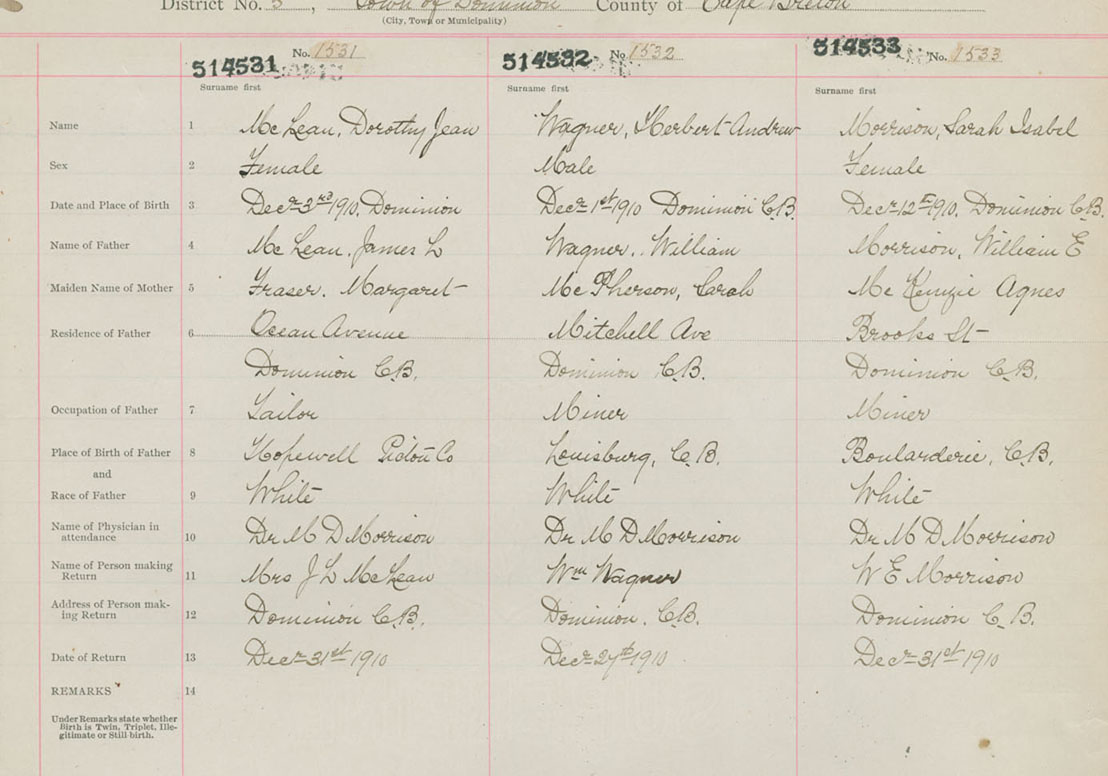 District No. 3, Town of Dominion County of Cape Breton
(City, Town or Municipality)
No. 1531 No. 1532 No. 1533
514531 514532 514533
Surname first Surname first Surname first
Name 1 McLean, Dorothy Jean Wagner, Herbert Andrew Morrison, Sarah Isabel
Sex 2 Female Male Female
Date and Place of Birth 3 Decr 3rd 1910, Dominion Decr 1st 1910 Dominion C.B. Decr 12t 1910, Dominion C.B.
Name of Father 4 McLean, James L Wagner, William Morrison, William E
Maiden Name of Mother 5 Fraser, Margaret McPherson, Sarah McKenzie Agnes
Residence of Father 6 Ocean Avenue Mitchell Ave Brooks St
Dominion C.B. Dominion C.B. Dominion C.B.
Occupation of Father 7 Tailor Miner Miner
Place of Birth of Father 8 Hopewell Pictou Co Louisburg, C.B. Boularderie, C.B.
and
Race of Father 9 White White White
Name of Physician in
attendance 10 Dr M D Morrison Dr M D Morrison Dr M D Morrison
Name of Person making
Return 11 Mrs J L McLean Wm Wagner W E Morrison
Address of Person mak-
ing Return 12 Dominion C.B. Dominion, C.B. Dominion C.B.
Date of Return 13 Decr 31st 1910 Decr 27th 1910 Decr 31st 1910
REMARKS 14
Under Remarks state whether
Birth is Twin, Triplet, Ille-
gitimate or Still-birth.